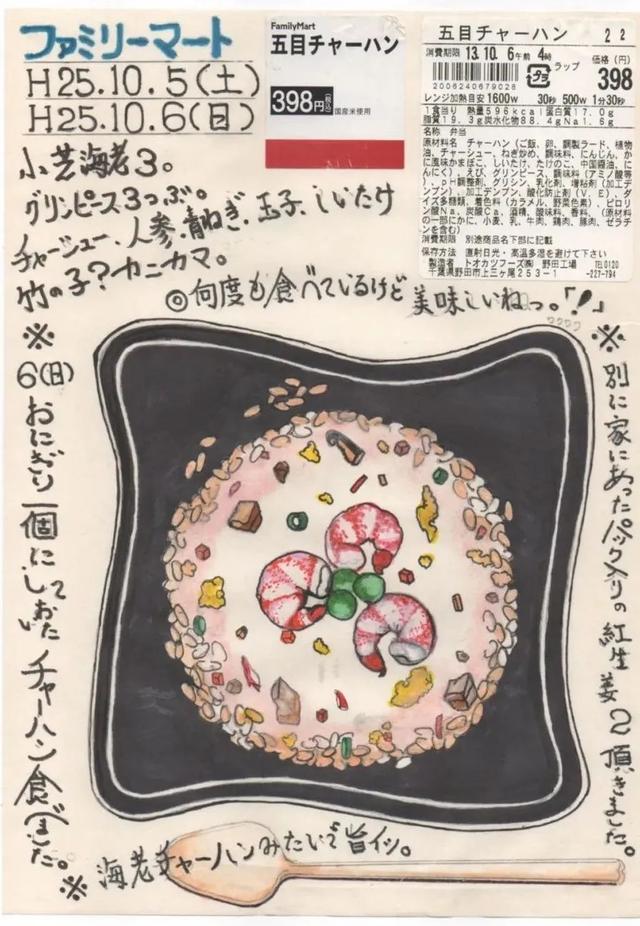 ファミリーマート
H25.10.5(土)
H25.10.6(日)
FamilyMart
五目チャーハン
398円(税込)
国産米使用
五目チャーハン 22
消費期限 13.10. 6 午前 4時
価格(円)
プラ
ラップ
398
2006240679028
レンジ加熱目安 1600W 30秒 500W 1分30秒
1食当り 熱量596kcal 蛋白質17.0g
脂質19.3g 炭水化物88.4g Na1.6g
名称 弁当
原材料名 チャーハン(ご飯、卵、調製ラード、植物
油、チャーシュー、ねぎ炒め、調味料、にんじん、か
に風味かまぼこ、しいたけ、たけのこ、中国醤油、に
んにく)、えび、グリンピース、調味料(アミノ酸等
)、pH調整剤、グリシン、乳化剤、増粘剤(加工デ
ンプン)、加工デンプン、酸化防止剤(V.E)、ダ
イズ多糖類、着色料(カラメル、野菜色素)、ピロリ
ン酸Na、炭酸Ca、酒精、酸味料、香料、(原材料
の一部にかに、小麦、乳、牛肉、鶏肉、豚肉、ゼラチ
ンを含む)
消費期限 別途商品名下部に記載
保存方法 直射日光・高温多湿を避けて下さい
製造者 トオカツフーズ㈱ 野田工場 TEL0120
千葉県野田市上三ヶ尾253-1 -227-794
小芝海老3。
グリンピース3つぶ。
チャーシュー、人参、青ねぎ、玉子、しいたけ
竹の子?カニカマ。
◎何度も食べているけど美味しいねっ。「!」
ワクワク
※別に家にあったパック入りの紅生姜2頂きました。
※6(日)おにぎり一個にしておいたチャーハン食べました。
※海老チャーハンみたいで旨イッ。